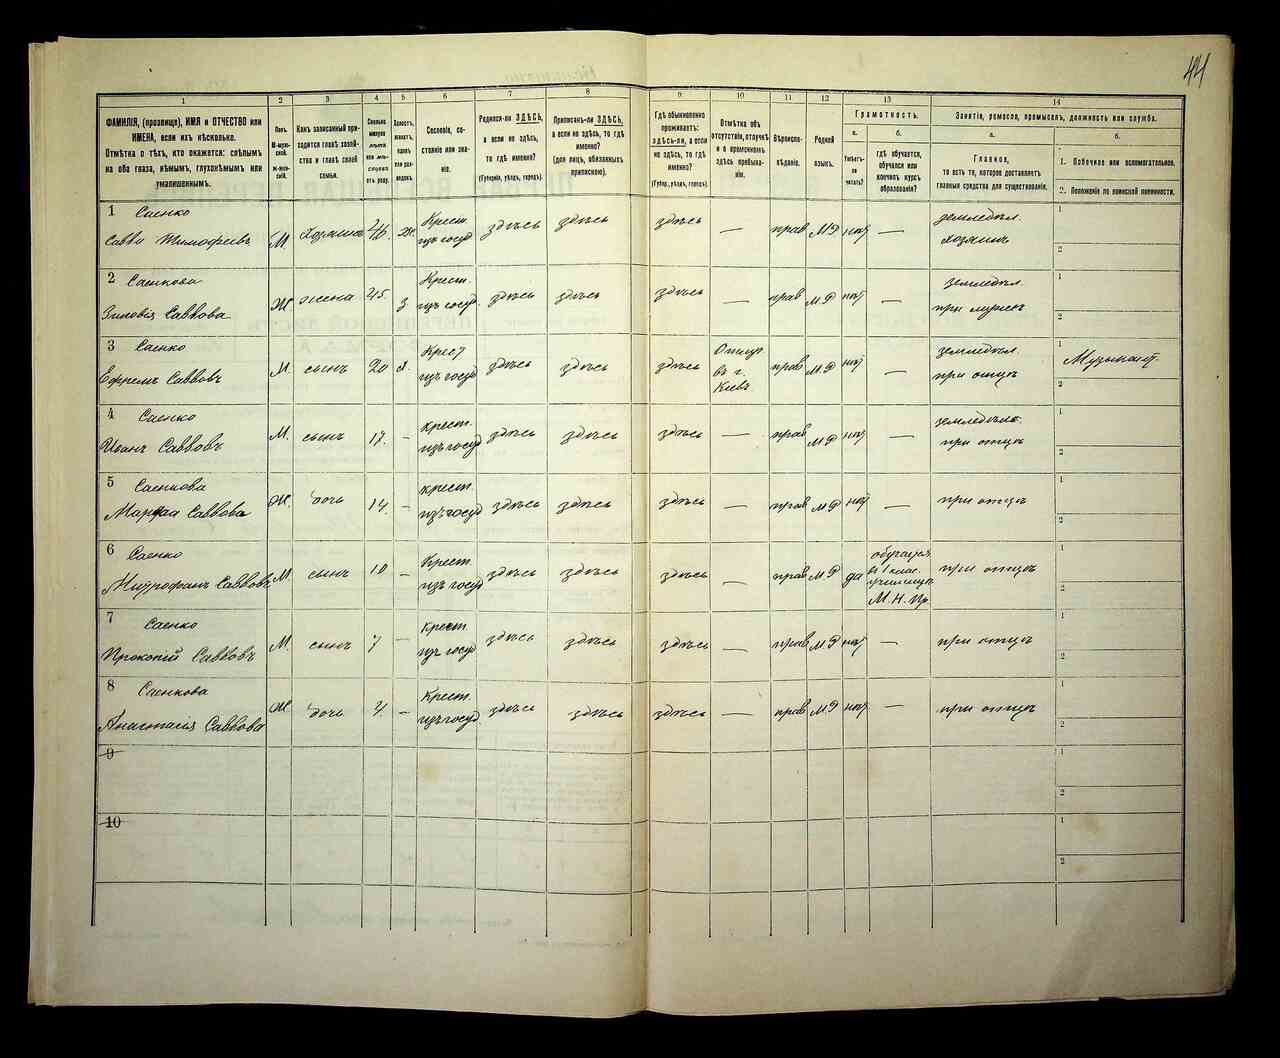 44
1
2
3
4
5
6
7
8
9
10
11
12
13
14
ФАМИЛІЯ, (прозвище), ИМЯ и ОТЧЕСТВО или
ИМЕНА, если ихъ нѣсколько.
Отмѣтка о тѣхъ, кто окажется: слѣпымъ
на оба глаза, нѣмымъ, глухонѣмымъ или
умалишеннымъ.
Полъ.
М-муж-
ской.
Ж-жен-
скій.
Какъ записанный при-
ходится главѣ хозяй-
ства и главѣ своей
семьи.
Сколько
минуло
лѣтъ
или мѣ-
сяцевъ
отъ роду.
Холостъ,
женатъ,
вдовъ
или раз-
веденъ.
Сословіе, со-
стояніе или зва-
ніе.
Родился-ли ЗДѢСЬ,
а если не здѣсь,
то гдѣ именно?
(Губернія, уѣздъ, городъ).
Приписанъ-ли ЗДѢСЬ,
а если не здѣсь, то гдѣ
именно?
(для лицъ, обязанныхъ
припискою).
Гдѣ обыкновенно
проживаетъ:
здѣсь-ли, а если
не здѣсь, то гдѣ
именно?
(Губер., уѣздъ, городъ).
Отмѣтка объ
отсутствіи, отлучкѣ
и о временномъ
здѣсь пребыва-
ніи.
Вѣроиспо-
вѣданіе.
Родной
языкъ.
Грамотность.
а.
Умѣетъ-
ли
читать?
б.
гдѣ обучается,
обучался или
кончилъ курсъ
образованія?
Занятіе, ремесло, промыселъ, должность или служба.
а.
Главное,
то есть то, которое доставляетъ
главныя средства для существованія.
б.
1. Побочное или вспомогательное.
2. Положеніе по воинской повинности.
1 Саенко
Савва Тимофеевъ М хозяинъ 46. ж. Крест. изъ госуд здѣсь здѣсь здѣсь — прав М Р нѣт — земледѣл. хозяинъ 1 2
2 Саенкова
Зиновія Саввова Ж жена 45. З Крест. изъ госуд. здѣсь здѣсь здѣсь — прав М Р нѣт — земледѣл. при мужѣ 1 2
3 Саенко
Ефремъ Саввовъ М. сынъ 20 х. Крест изъ госуд здѣсь здѣсь здѣсь въ г. Кіевъ прав М Р нѣт — земледѣл. при отцѣ 1 Музыкант. 2
4 Саенко
Иванъ Саввовъ М. сынъ 17. — Крест. изъ госуд здѣсь здѣсь здѣсь — прав М Р нѣт — земледѣльч. при отцѣ 1 2
5 Саенкова
Марфа Саввова Ж. дочь 14. — крест. изъ госуд здѣсь здѣсь здѣсь — прав М Р нѣт — при отцѣ 1 2
6 Саенко
Митрофанъ Саввовъ М. сынъ 10 — Крест. изъ госуд здѣсь здѣсь здѣсь — прав М Р да обучается въ 1 клас. училищѣ М. Н. Пр. при отцѣ 1 2
7 Саенко
Прокопій Саввовъ М. сынъ 7 — крест. изъ госуд здѣсь здѣсь здѣсь — прав М Р нѣт — при отцѣ 1 2
8 Саенкова
Анастасія Саввова Ж дочь 4. — Крест. изъ госуд. здѣсь здѣсь здѣсь — прав М Р нѣт — при отцѣ 1 2
9 1 2
10 1 2